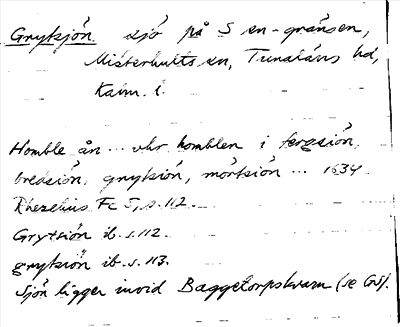 Grytsjön sjö på S sn-gränsen,
Misterhults sn, Tunaläns hd,
Kalm. l.
Homble ån ... uhr homblen i fergsiön,
bredsiön, grytsiön, mörtsiön ... 1634
Rhezelius Fc 5, s. 112.
Grytsiön ib. s. 112.
grytsiön ib. s. 113.
Sjön ligger invid Baggetorpskvarn (se GS).